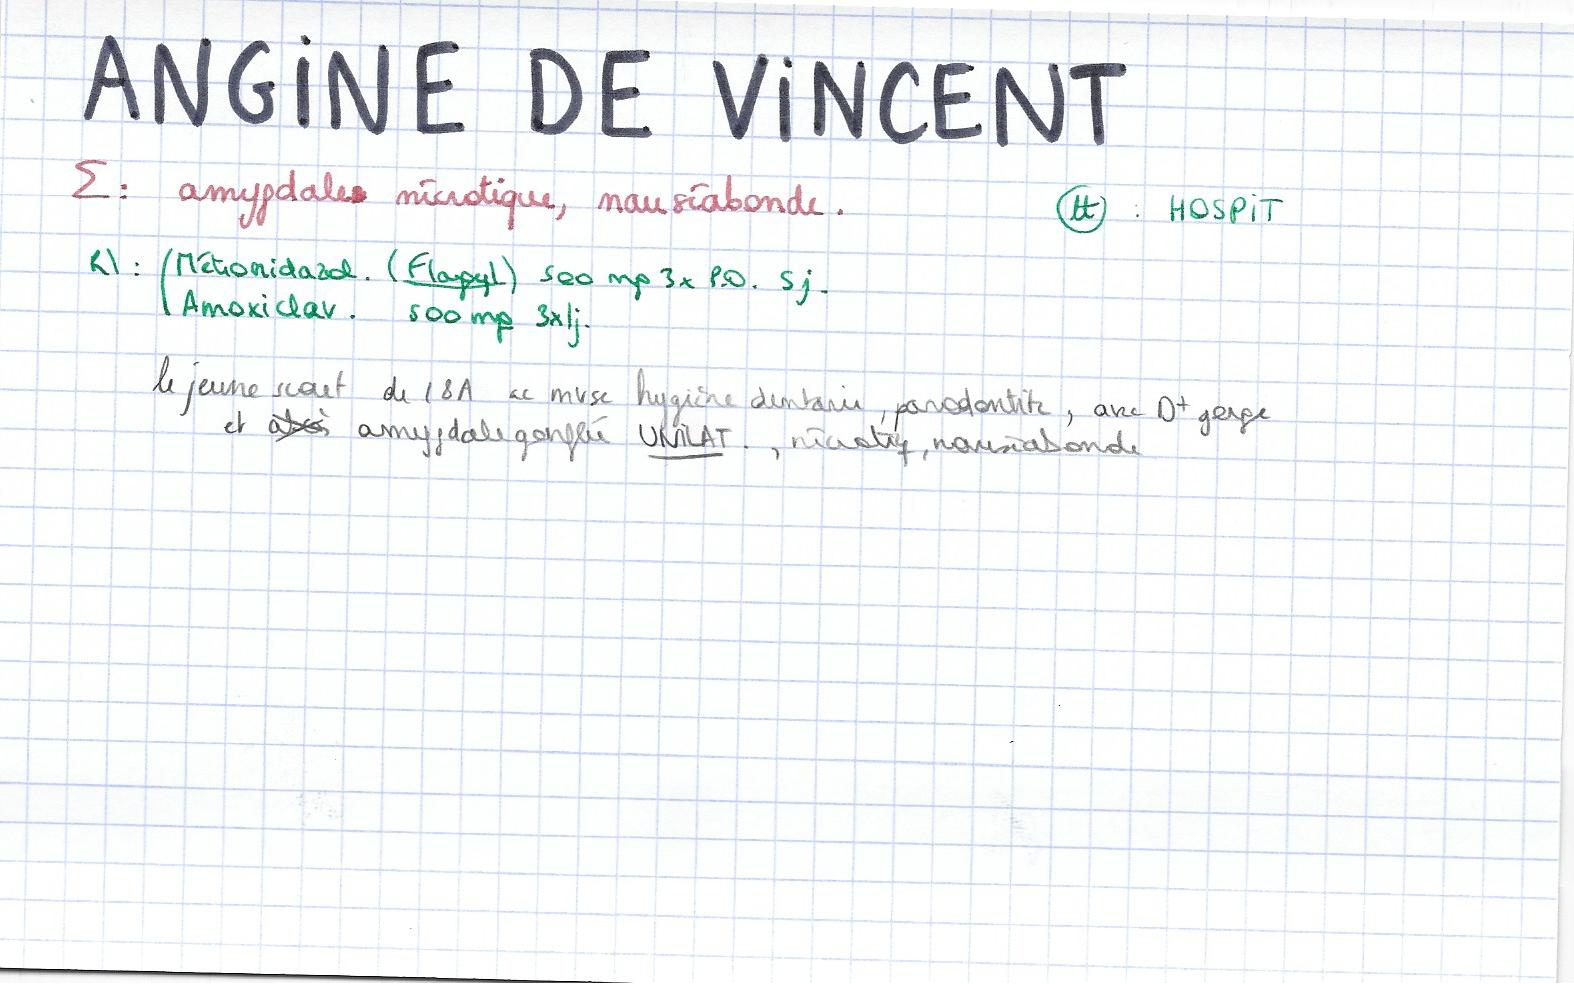 ANGINE DE VINCENT
Σ: amygdale nécrotique, nauséabonde. tt : HOSPIT
R\: Métronidazol. (Flagyl) 500 mg 3x P.O. 5j.
Amoxiclav. 500 mg 3x/j.
le jeune scout de 18A ac mvse hygiène dentaire, parodontite, avec D+ gorge
et amygdale gonflée UNILAT., nécrotiq, nauséabonde